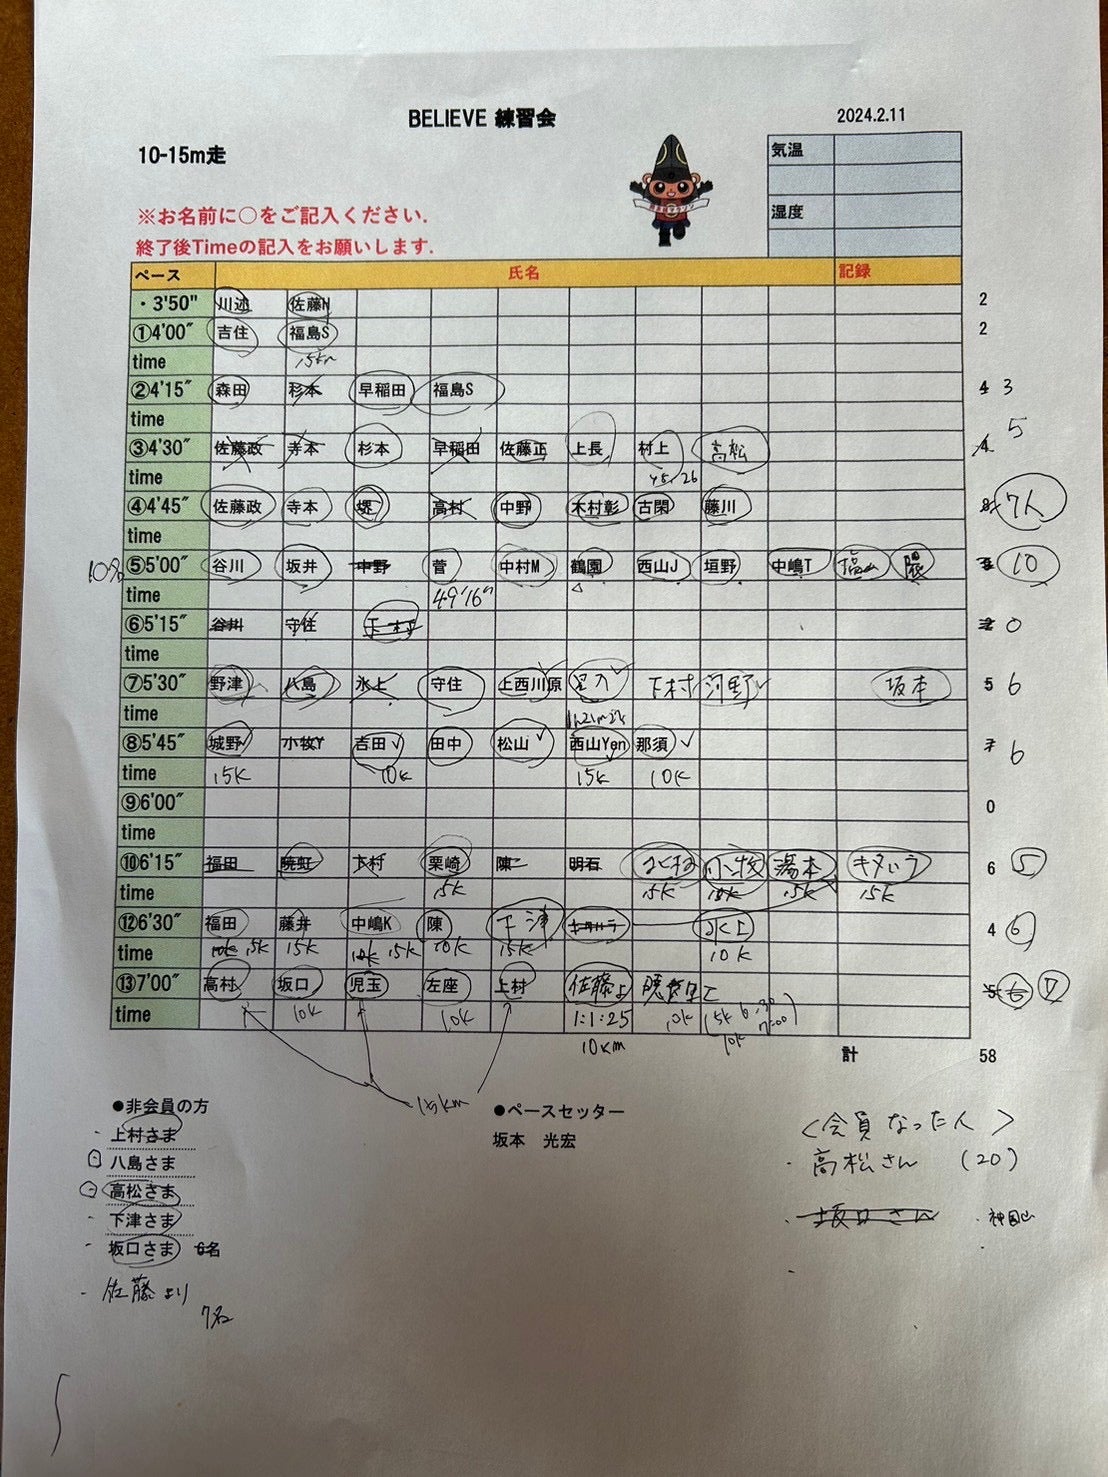 BELIEVE 練習会 2024.2.11
10-15m走 気温
※お名前に○をご記入ください. 湿度
終了後Timeの記入をお願いします.
ペース 氏名 記録
・3'50" 川述 佐藤H 2
①4'00" 吉住 福島S 2
time 15km
②4'15" 森田 杉本 早稲田 福島S 4 3
time
③4'30" 佐藤政 寺本 杉本 早稲田 佐藤正 上長 村上 高松 4 5
time 45/26
④4'45" 佐藤政 寺本 堺 高村 中野 木村彰 古閑 藤川 7人
time
⑤5'00" 谷川 坂井 中野 菅 中村M 鶴園 西山J 垣野 中嶋T 10
time 49'16"
⑥5'15" 谷川 守住 0
time
⑦5'30" 野津 八島 氷上 守住 上西川原 下村 河野 坂本 5 6
time
⑧5'45" 城野 小牧Y 吉田 田中 松山 西山Yen 那須 7 6
time 15K 10K 15K 10K
⑨6'00" 0
time
⑩6'15" 福田 暁虹 下村 栗崎 陳 明石 小牧 湯本 キタハラ 6 5
time 15K 15K 15K 15K
⑫6'30" 福田 藤井 中嶋K 陳 下津 キタハラ 水上 4 6
time 10K 15K 15K 10K 15K 10K 15K 10K
⑬7'00" 高村 坂口 児玉 左座 上村 佐藤より 5 6 7
time 10K 10K 1:1:25 10K (15K 6:30
10km 10K 7:00)
計 58
15km
●非会員の方 ●ペースセッター
上村さま 坂本 光宏
八島さま
高松さま
下津さま
坂口さま 6名
佐藤より
7名
<会員なった人>
・高松さん (20)
・坂口さん